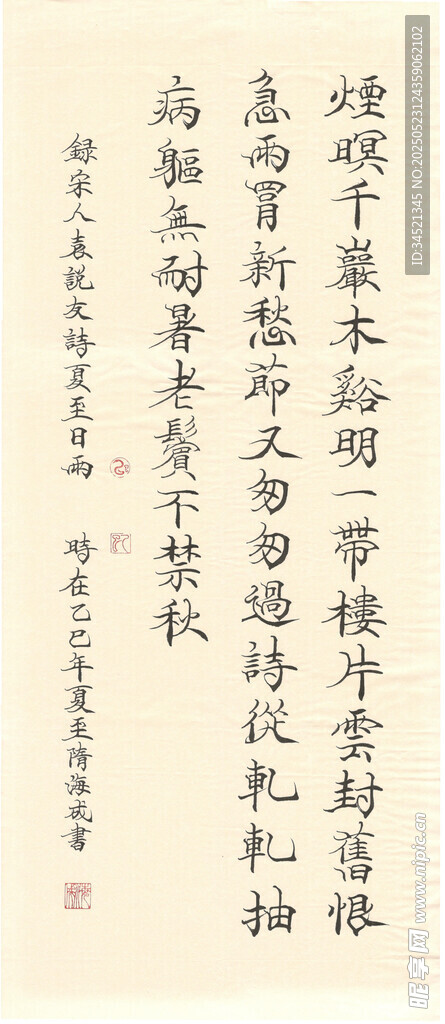 煙暝千巖木谿明一帶樓片雲封舊恨
急雨罥新愁節又匆匆過詩從軋軋抽
病軀無耐暑老鬢不禁秋
録宋人袁說友詩夏至日雨
時在乙巳年夏至隋海成書
ID:34521345 NO:20250523124359062102
昵享网 www.nipic.cn